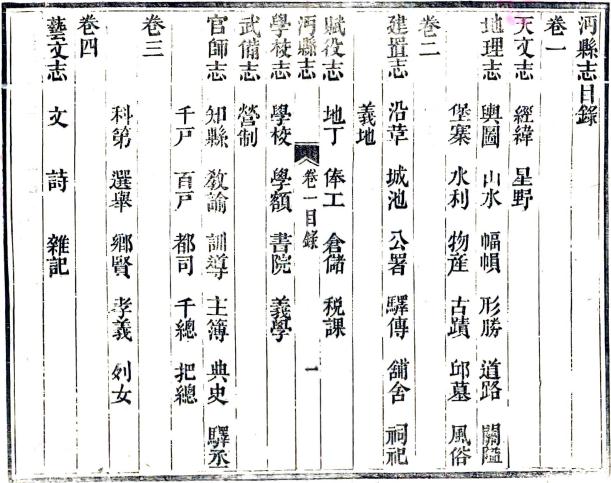 沔縣志目錄
卷一
天文志 經緯 星野
地理志 輿圖 山水 幅幀 形勝 道路 關隘
堡寨 水利 物產 古蹟 邱墓 風俗
卷二
建置志 沿革 城池 公署 驛傳 舖舍 祠祀
義地
賦役志 地丁 俸工 倉儲 稅課
沔縣志 卷一目錄 一
學校志 學校 學額 書院 義學
武備志 營制
官師志 知縣 教諭 訓導 主簿 典史 驛丞
千戶 百戶 都司 千總 把總
卷三
科第 選舉 鄉賢 孝義 列女
卷四
藝文志 文 詩 雜記